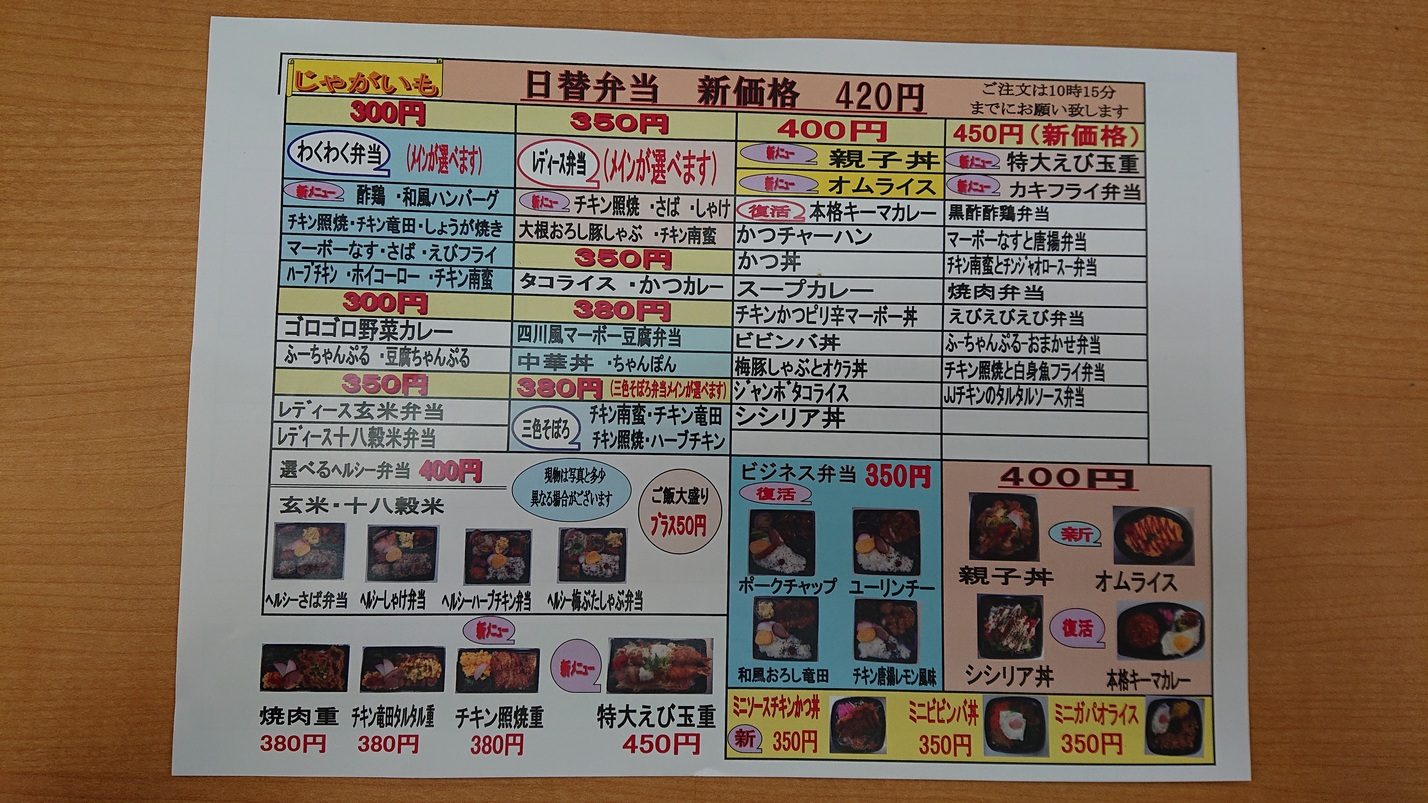 じゃがいも
日替弁当 新価格 420円
ご注文は10時15分
までにお願い致します
300円
わくわく弁当 (メインが選べます)
新メニュー 酢鶏 ・和風ハンバーグ
チキン照焼・チキン竜田・しょうが焼き
マーボーなす・さば・えびフライ
ハーブチキン ・ホイコーロー ・チキン南蛮
300円
ゴロゴロ野菜カレー
ふーちゃんぷる ・豆腐ちゃんぷる
350円
レディース玄米弁当
レディース十八穀米弁当
350円
レディース弁当 (メインが選べます)
新メニュー チキン照焼 ・さば ・しゃけ
大根おろし豚しゃぶ ・チキン南蛮
350円
タコライス ・かつカレー
380円
四川風マーボー豆腐弁当
中華丼 ・ちゃんぽん
380円 (三色そぼろ弁当メインが選べます)
三色そぼろ
チキン南蛮・チキン竜田
チキン照焼・ハーブチキン
400円
新メニュー 親子丼
新メニュー オムライス
復活 本格キーマカレー
かつチャーハン
かつ丼
スープカレー
チキンかつピリ辛マーボー丼
ビビンバ丼
梅豚しゃぶとオクラ丼
ジャンボタコライス
シシリア丼
450円(新価格)
新メニュー 特大えび玉重
新メニュー カキフライ弁当
黒酢酢鶏弁当
マーボーなすと唐揚弁当
チキン南蛮とチンジャオロースー弁当
焼肉弁当
えびえびえび弁当
ふーちゃんぷるーおまかせ弁当
チキン照焼と白身魚フライ弁当
JJチキンのタルタルソース弁当
選べるヘルシー弁当 400円
玄米・十八穀米
現物は写真と多少
異なる場合がございます
ご飯大盛り
プラス50円
ヘルシーさば弁当 ヘルシーしゃけ弁当 ヘルシーハーブチキン弁当 ヘルシー梅ぶたしゃぶ弁当
新メニュー
新メニュー
焼肉重 チキン竜田タルタル重 チキン照焼重 特大えび玉重
380円 380円 380円 450円
ビジネス弁当 350円
復活
ポークチャップ ユーリンチー
和風おろし竜田 チキン唐揚レモン風味
400円
新
親子丼 オムライス
復活
シシリア丼 本格キーマカレー
ミニソースチキンかつ丼 ミニビビンバ丼 ミニガパオライス
新 350円 350円 350円